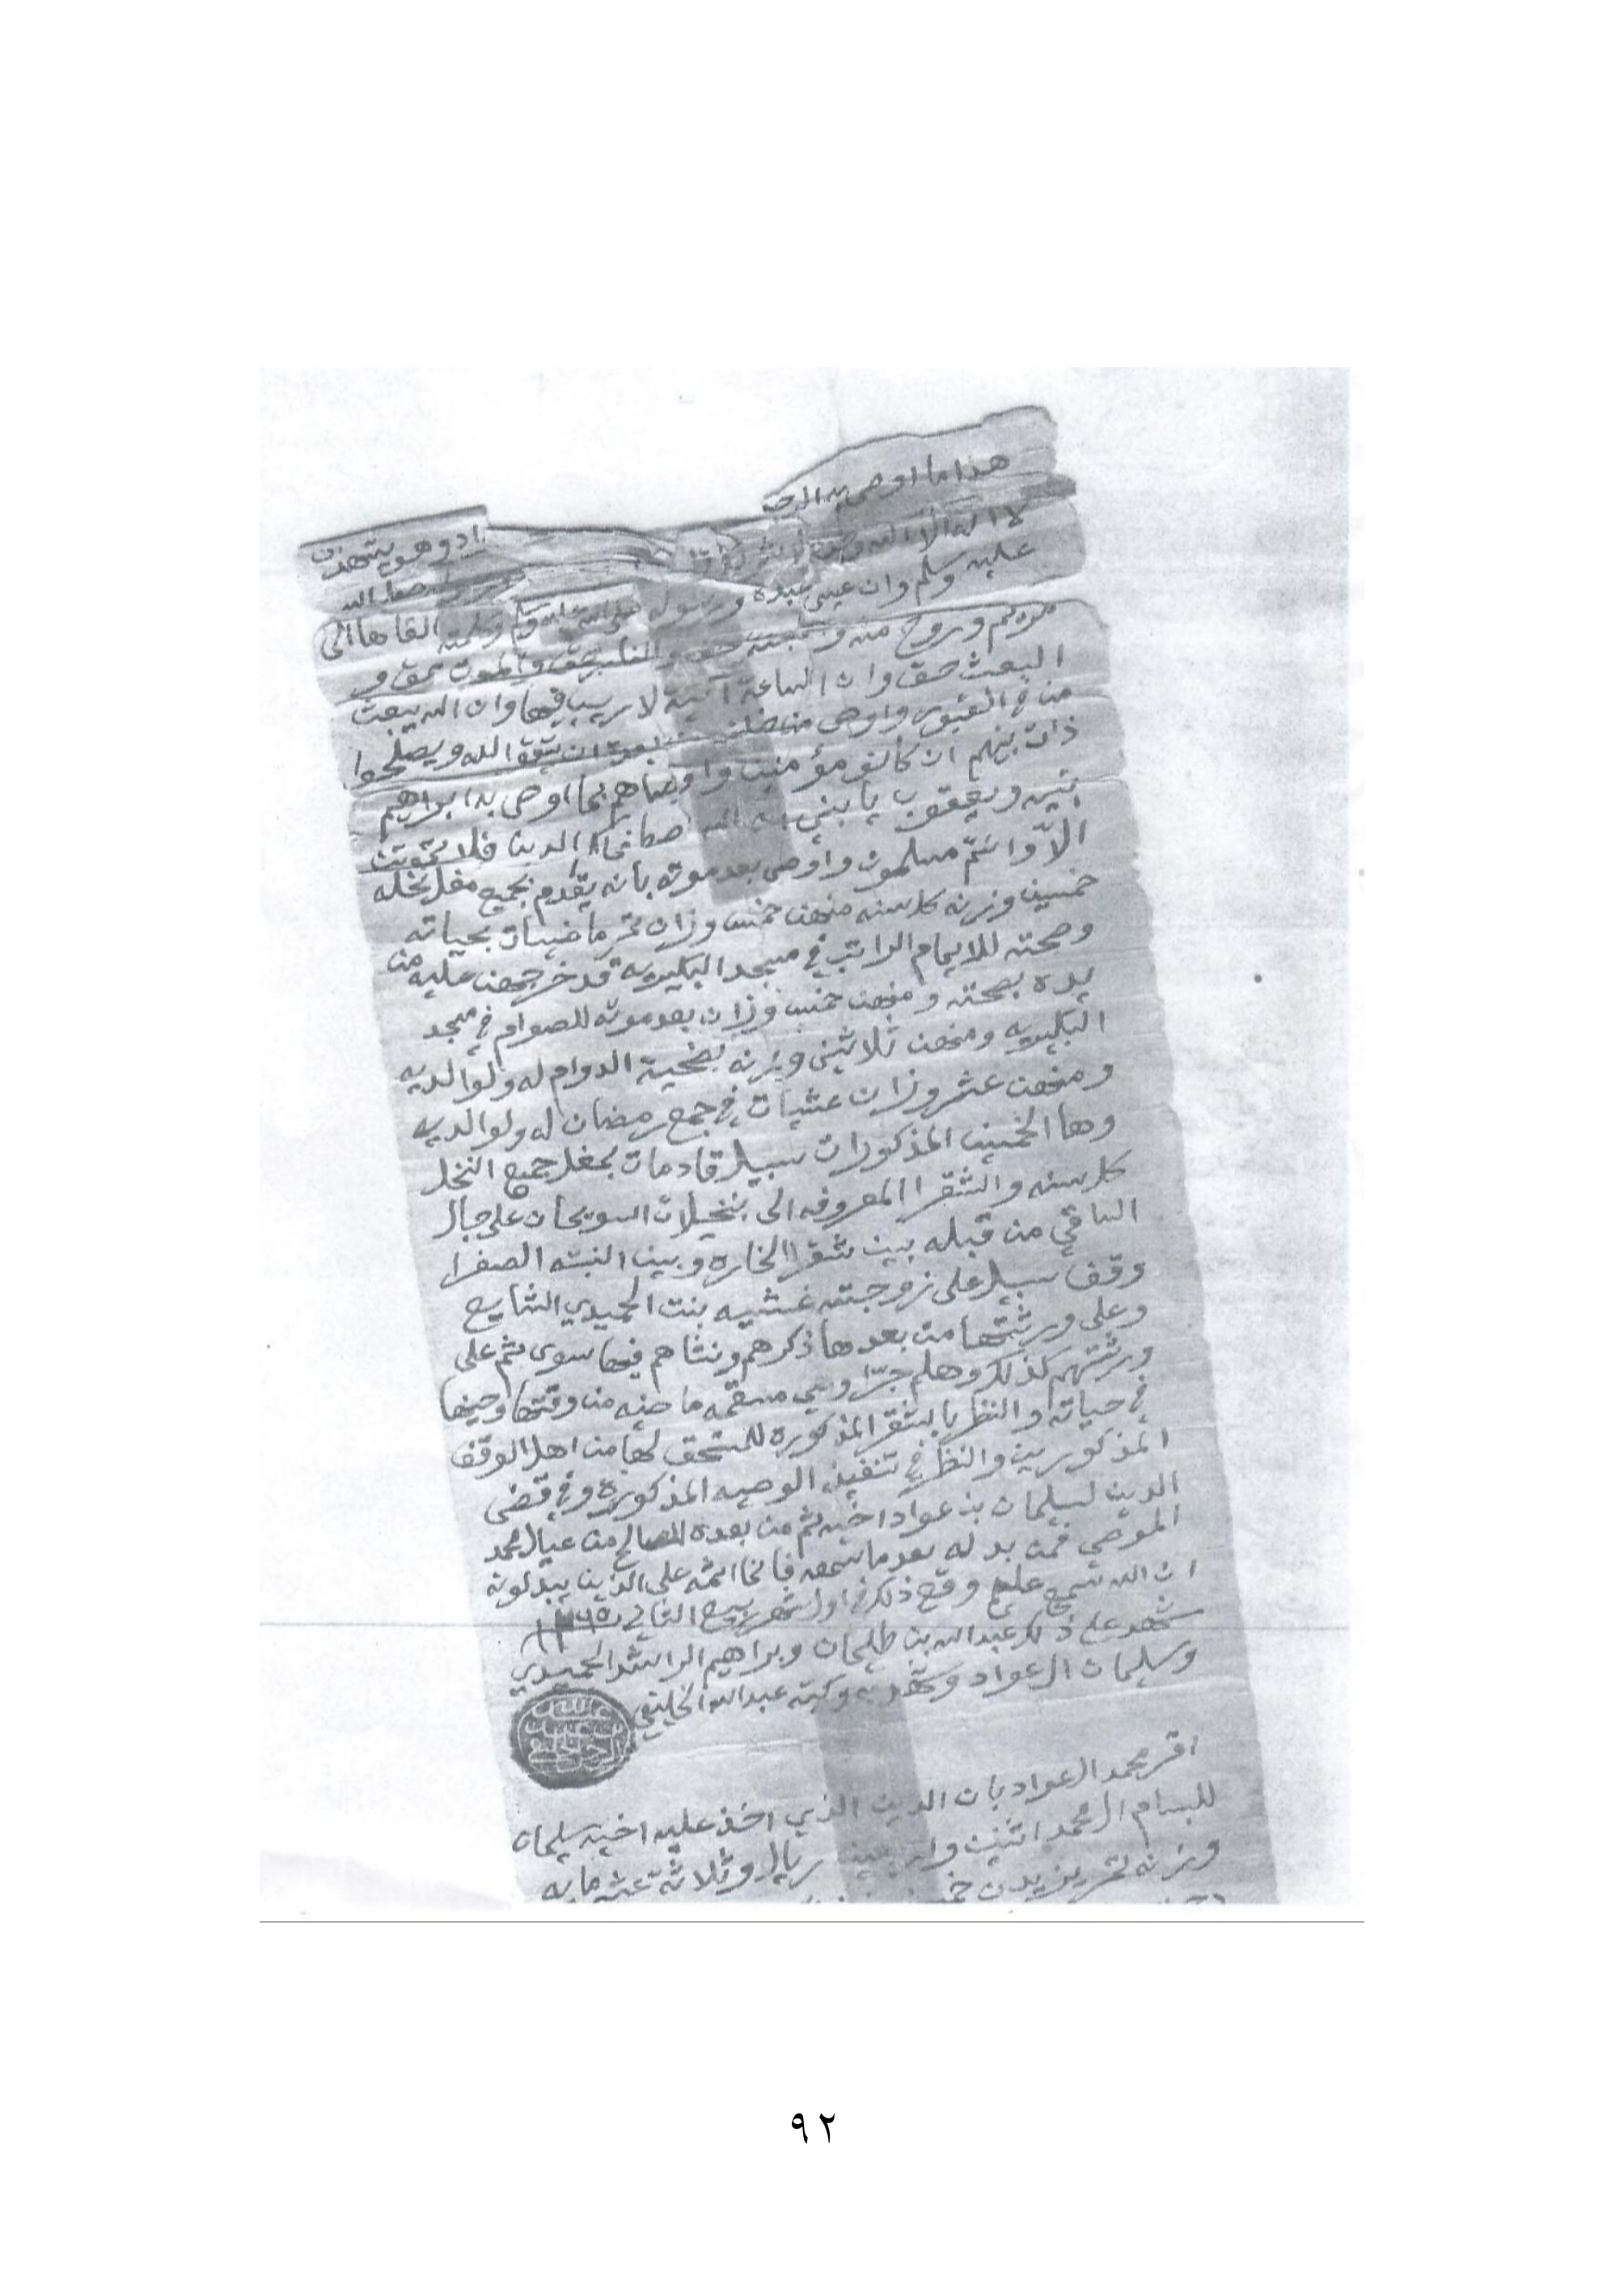 هذا ما اوصى به
اد وهو يشهد ان
لا اله الا الله وحده لا شريك
صلى الله
عليه وسلم وان عيسى عبده ورسوله وكلمته القاها الى
مريم وروح منه والجنة حق والنار حق والموت حق و
البعث حق وان الساعة آتية لا ريب فيها وان الله يبعث
من في القبور واوصى من خلف من بعده ان يتقو الله ويصلحوا
ذات بينهم ان كانو مؤمنين واوصاهم بما اوصى به ابراهيم
بنيه ويعقوب يا بني ان الله اصطفى لكم الدين فلا تموتن
الا وانتم مسلمون واوصى بعد موته بانه يقدم بجميع مغل نخله
خمسين وزنه كل سنه منهن خمس وزان تمر ماضيات بحياته
وصحته للامام الراتب في مسجد البكيريه قد خرجهن عليه من
يده بصحته ومنهن خمس وزان بعد موته للصوام في مسجد
البكيريه ومنهن ثلاثين وزنه بضحية الدوام له ولوالديه
ومنهن عشر وزان عشيات في جمع رمضان له ولوالديه
وها الخمسين المذكورات سبيل قادمات بمغل جميع النخل
كل سنه والشقرا المعروفه الى بنخيلات السويحان على جال
الساقي من قبله بين شقرا الخاره وبين النبته الصفرا
وقف سبيل على زوجته غشيه بنت الحميدي الشايع
وعلى ورثتها من بعدها ذكرهم ونثاهم فيها سوى ثم على
ورثتهم كذلك وهلم جرّا وهي مسقمه ماضيه من وقتها وحينها
في حياته والنظر بالشقر المذكورة للمستحق لها من اهل الوقف
المذكورين والنظر في تنفيذ الوصيه المذكورة وفي قضى
الدين لسليمان بن عواد اخيه ثم من بعده للصالح من عيال محمد
الموصي فمن بدله بعد ما سمعه فانما اثمه على الذين يبدلونه
ان الله سميع عليم وقع ذلك في اول شهر ربيع الثاني ١٢٦٥
شهد على ذلك عبد الله بن طليحان وبراهيم الراشد الحميدي
وسليمان العواد وشهد به وكتبه عبد الله الخليفي
اقر محمد العواد بان الدين الذي اخذ عليه اخيه سليمان
للبسام ال محمد اثنين واربعين ريال وثلاثة عشر مايه
وزنه تمر يزيدن
٩٢